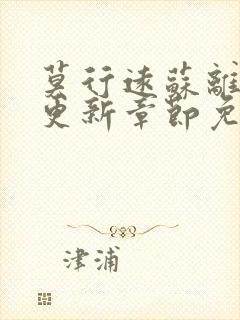 莫行遠蘇離
更新章節免
津浦